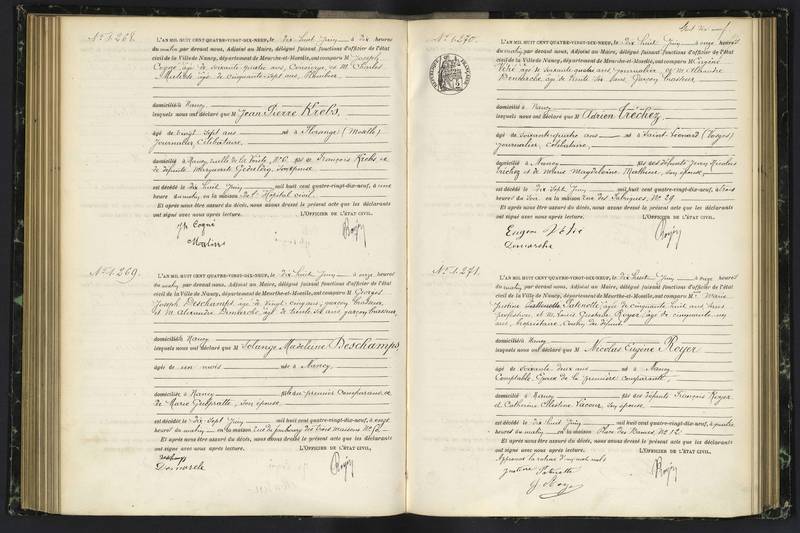 No 1.268.
L'AN MIL HUIT CENT QUATRE-VINGT-DIX-NEUF, le dix huit Juin à dix heures
du matin par devant nous, Adjoint au Maire, délégué faisant fonctions d'officier de l'état
civil de la Ville de Nancy, département de Meurthe-et-Moselle, ont comparu M Joseph
Cogné âgé de soixante quatre ans, Concierge, et M. Charles
âgé de cinquante sept ans,
domiciliés à Nancy
lesquels nous ont déclaré que M Jean Pierre Krebs,
âgé de vingt sept ans né à Florange (Moselle)
journalier, Célibataire,
domicilié à Nancy, ruelle de la fils de François Krebs et
de défunte Marguerite son épouse
est décédé le dix huit Juin mil huit cent quatre-vingt-dix-neuf, à une
heure du matin, en la maison de l'Hôpital civil.
Et après nous être assuré du décès, nous avons dressé le présent acte que les déclarants
ont signé avec nous après lecture. L'OFFICIER DE L'ÉTAT CIVIL,
Cogné
No 1.269.
L'AN MIL HUIT CENT QUATRE-VINGT-DIX-NEUF, le dix huit Juin à onze heures
du matin par devant nous, Adjoint au Maire, délégué faisant fonctions d'officier de l'état
civil de la Ville de Nancy, département de Meurthe-et-Moselle, ont comparu M Georges
Joseph Deschamps âgé de vingt cinq ans, garçon brasseur,
et M. Alexandre âgé de trente six ans garçon brasseur,
domiciliés à Nancy
lesquels nous ont déclaré que M Solange Madeleine Deschamps
âgée de un mois née à Nancy,
domiciliée à Nancy fille du premier comparant et
de Marie son épouse
est décédée le dix-sept Juin mil huit cent quatre-vingt-dix-neuf, à onze
heures du matin en la maison rue du faubourg des trois maisons No 12
Et après nous être assuré du décès, nous avons dressé le présent acte que les déclarants
ont signé avec nous après lecture. L'OFFICIER DE L'ÉTAT CIVIL,
Deschamps
No 1.270.
L'AN MIL HUIT CENT QUATRE-VINGT-DIX-NEUF, le dix huit Juin à onze heures
du matin par devant nous, Adjoint au Maire, délégué faisant fonctions d'officier de l'état
civil de la Ville de Nancy, département de Meurthe-et-Moselle, ont comparu M Eugène
âgé de soixante quatre ans journalier, et M. Alexandre
âgé de trente six ans, garçon brasseur
domiciliés à Nancy
lesquels nous ont déclaré que M Adrien Tréchez,
âgé de soixante ans né à Saint-Léonard (Vosges)
journalier, Célibataire,
domicilié à Nancy fils des défunts Jean Nicolas
Tréchez et de Marie Magdeleine Mathieu, son épouse,
est décédé le dix sept Juin mil huit cent quatre-vingt-dix-neuf, à trois
heures du soir en la maison rue des Fabriques, No 29
Et après nous être assuré du décès, nous avons dressé le présent acte que les déclarants
ont signé avec nous après lecture. L'OFFICIER DE L'ÉTAT CIVIL,
Eugène
No 1.271.
L'AN MIL HUIT CENT QUATRE-VINGT-DIX-NEUF, le dix huit Juin à onze heures
du matin par devant nous, Adjoint au Maire, délégué faisant fonctions d'officier de l'état
civil de la Ville de Nancy, département de Meurthe-et-Moselle, ont comparu M Marie
Justine âgée de cinquante huit ans, sans
profession, et M. Louis Gustave Royer âgé de cinquante
ans, propriétaire, Cousin du défunt
domiciliés à Nancy
lesquels nous ont déclaré que M Nicolas Eugène Royer
âgé de soixante deux ans né à Nancy
Comptable, Époux de la première comparante,
domicilié à Nancy fils des défunts François Royer
et Catherine Christine son épouse,
est décédé le dix huit Juin mil huit cent quatre-vingt-dix-neuf, à quatre
heures du matin, en la maison Place des Dames, No 12
Et après nous être assuré du décès, nous avons dressé le présent acte que les déclarants
ont signé avec nous après lecture. L'OFFICIER DE L'ÉTAT CIVIL,
Justine
G. Royer